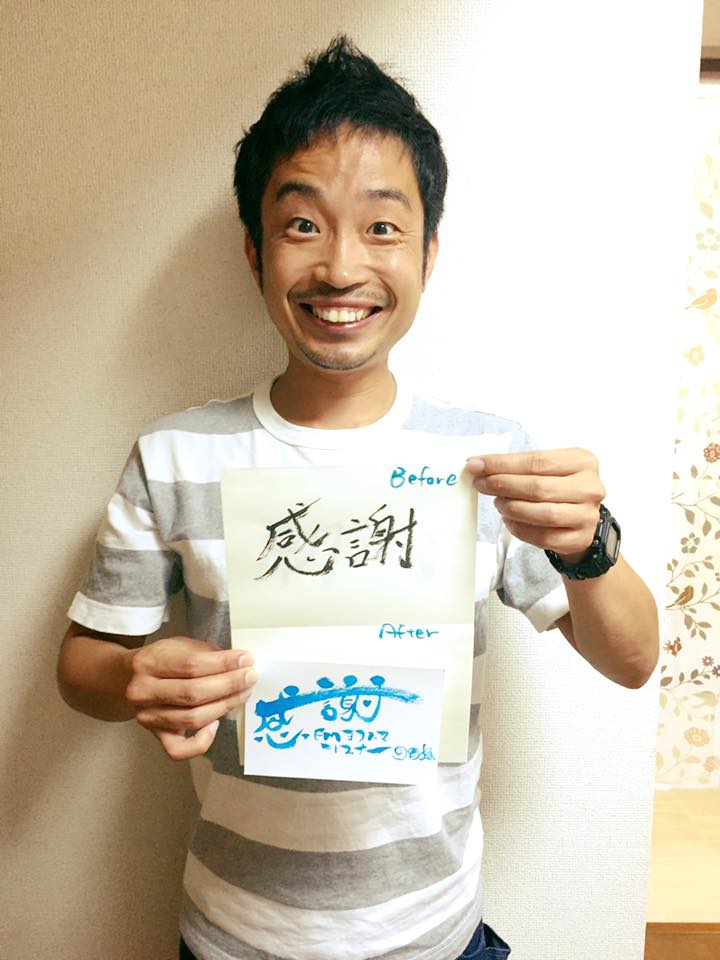 Before
感謝
After
感謝
FMヨコハマ
リスナー